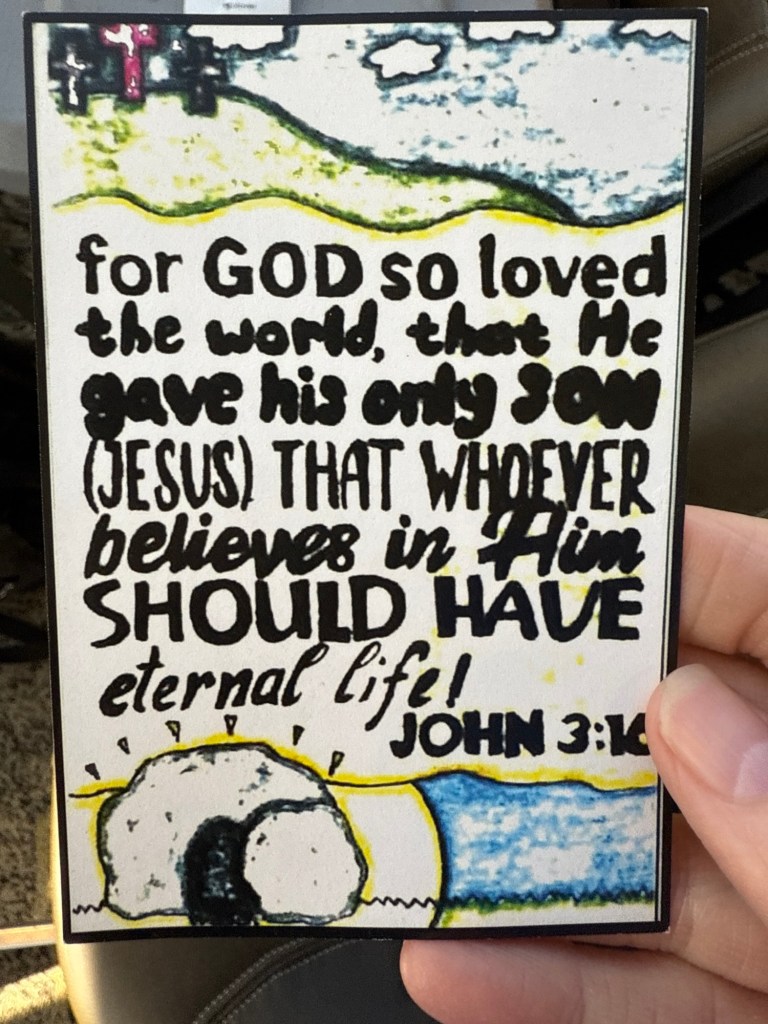 for GOD so loved
the world, that He
gave his only SON
(JESUS) THAT WHOEVER
believes in Him
SHOULD HAVE
eternal life!
JOHN 3:16